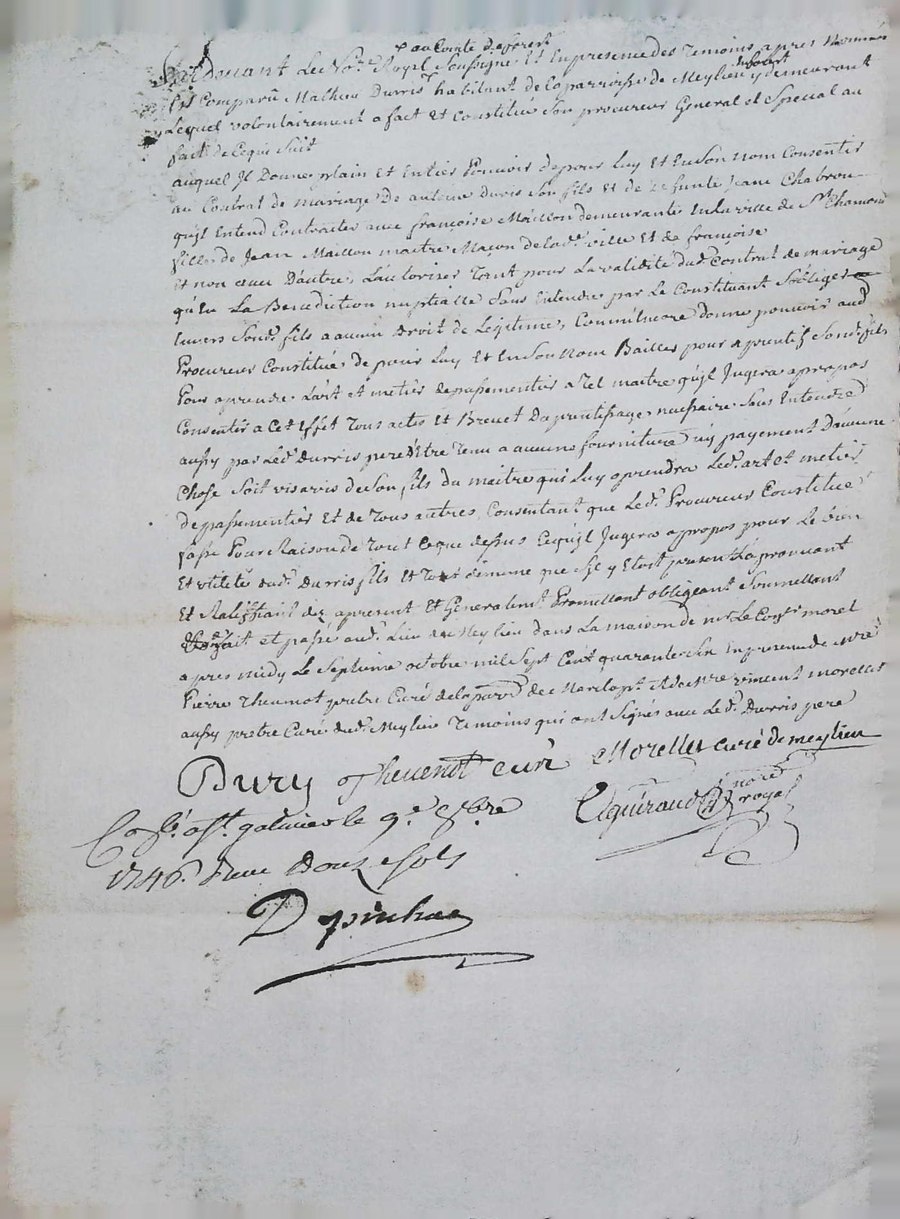 au Comté de forest
Pardevant Le No.re Royal Soussigné Et En presence des Temoins apres Nommés
Est Comparû Mathieu Durris habitant de la parroisse de Meylieu y demeurant
Lequel volontairement a fact et Constitué Son procureur General et Special au
fait de Ceque Suit
auquel Il Donne plain et Entier Pouvoir de pour Luy et En Son Nom Consentir
au Contrat de mariage De antoine duris Son fils et de defunte Jeane Chabron
qu'il Entend Contracter avec françoise Maillon demeurante En la ville de St Chamond
fille de Jean Maillon maitre Maçon de lad.e ville Et de françoise
Et non avec D'autre, L'autoriser Tant pour La validité dud. Contrat de mariage
qu'en La Benediction nuptialle Sans Entendre par Le Constituant S'obliger
Envers Sond. fils a aucun Droit de Legitime, Comm'Encore donne pouvoir aud.
Procureur Constitué de pour Luy Et En Son Nom Bailler pour aprentif Sond. fils
Pour aprendre L'art et metier de passementier a Tel maitre qu'il Jugera apropos
Consentir a Cet Effet Tous actes Et Brevet D'aprentissage necessaire Sans Entendre
aussy par Led. Durris pere D'Etre Tenu a aucune fourniture ny payement D'aucune
Chose Soit vis avis de Son fils du maitre qui Luy aprendra Led. art et metier
de passementier Et de Tous autres, Consentant que Led. Procureur Constitué
fasse Pour Raison de Tout Ceque dessus Ce qu'il Jugera apropos pour Le bien
Et utilité dud. Durris fils Et Tout de meme que S'il y Etoit present L'aprouvant
Et Ratiffiant dez apresent Et Generalem.t Promettant obligeant Soumettant
fait et passé aud. Lieu de Meylieu dans La maison de mr Le Morel
apres midy Le Septieme octobre mil Sept Cent quarante Six En presence de mre
Pierre Thevenot pretre Curé de la parr.e de Et de mre vincent Morellet
aussy pretre Curé dud. Meylieu Temoins qui ont Signés avec Led. Durris pere
Dury Thevenot curé Morellet curé de meylieu
Eguiraud no.re royal
Co.lé a St. galmier le 9.e 8bre
1746. Reçu Douze Sols
Depinhac